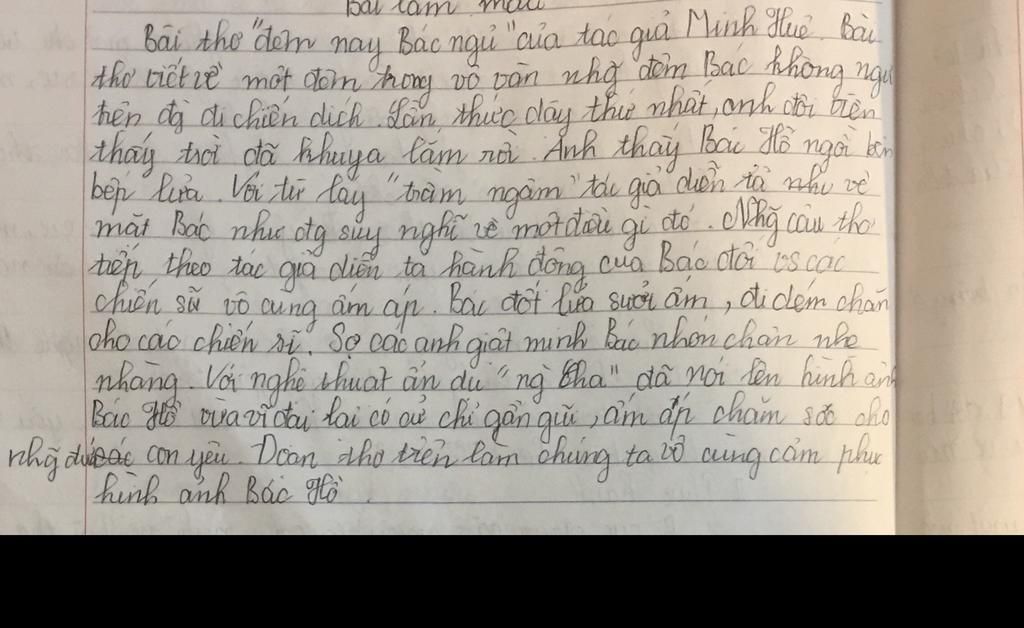 Bài làm mẫu
Bài thơ "đêm nay Bác ngủ" của tác giả Minh Huệ. Bài
thơ viết về một đêm trong vô vàn nhg đêm Bác không ngủ
trên đg đi chiến dịch. Lần thức dậy thứ nhất, anh đội viên
thấy trời đã khuya lắm rồi. Anh thấy Bác Hồ ngồi bên
bếp lửa. Với từ láy "trầm ngâm" tác giả diễn tả như vẻ
mặt Bác như đg suy nghĩ về một điều gì đó. Nhg câu thơ
tiếp theo tác giả diễn tả hành động của Bác đối vs các
chiến sĩ vô cùng ấm áp. Bác đốt lửa sưởi ấm, đi dém chăn
cho các chiến sĩ. Sợ các anh giật mình Bác nhón chân nhẹ
nhàng. Với nghệ thuật ẩn dụ "ng cha" đã nói lên hình ảnh
Bác Hồ vừa vĩ đại lại có cử chỉ gần gũi, ấm áp chăm sóc cho
nhg đứa con yêu. Đoạn thơ trên làm chúng ta vô cùng cảm phục
hình ảnh Bác Hồ.